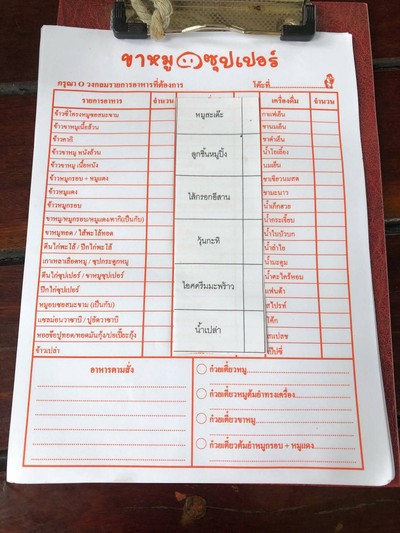 ขาหมู ซุปเปอร์
กรุณา O วงกลมรายการอาหารที่ต้องการ โต๊ะที่
รายการอาหาร จำนวน เครื่องดื่ม จำนวน
ข้าวซี่โครงหมูซอสมะขาม
ข้าวขาหมูเนื้อล้วน
ข้าวคากิ
ข้าวขาหมู หนังล้วน
ข้าวขาหมู เนื้อหนัง
ข้าวหมูกรอบ + หมูแดง
ข้าวหมูแดง
ข้าวหมูกรอบ
ขาหมู/หมูกรอบ/หมูแดง/คากิ(เป็นกับ)
ขาหมูทอด / ไส้พะโล้ทอด
ตีนไก่พะโล้ / ปีกไก่พะโล้
เกาเหลาเลือดหมู / ซุปกระดูกหมู
ตีนไก่ซุปเปอร์ / ขาหมูซุปเปอร์
ปีกไก่ซุปเปอร์
หมูอบซอสมะขาม (เป็นกับ)
แซลมอนวาซาบิ / ปูอัดวาซาบิ
หอยจ๊อปูทอด/ทอดมันกุ้ง/ปอเปี๊ยะกุ้ง
ข้าวเปล่า
หมูสะเต๊ะ
ลูกชิ้นหมูปิ้ง
ไส้กรอกอีสาน
วุ้นกะทิ
ไอศครีมมะพร้าว
น้ำเปล่า
กาแฟเย็น
ชานมเย็น
ชาดำเย็น
น้ำโอเลี้ยง
นมเย็น
ชาเขียวนมสด
ชามะนาว
น้ำเก็กฮวย
น้ำกระเจี๊ยบ
น้ำใบบัวบก
น้ำลำไย
น้ำมะตูม
น้ำตะไคร้หอม
แฟนต้า
สไปรท์
โค้ก
เป๊ปซี่
อาหารตามสั่ง
ก๋วยเตี๋ยวหมู
ก๋วยเตี๋ยวหมูต้มยำทรงเครื่อง
ก๋วยเตี๋ยวขาหมู
ก๋วยเตี๋ยวต้มยำหมูกรอบ + หมูแดง